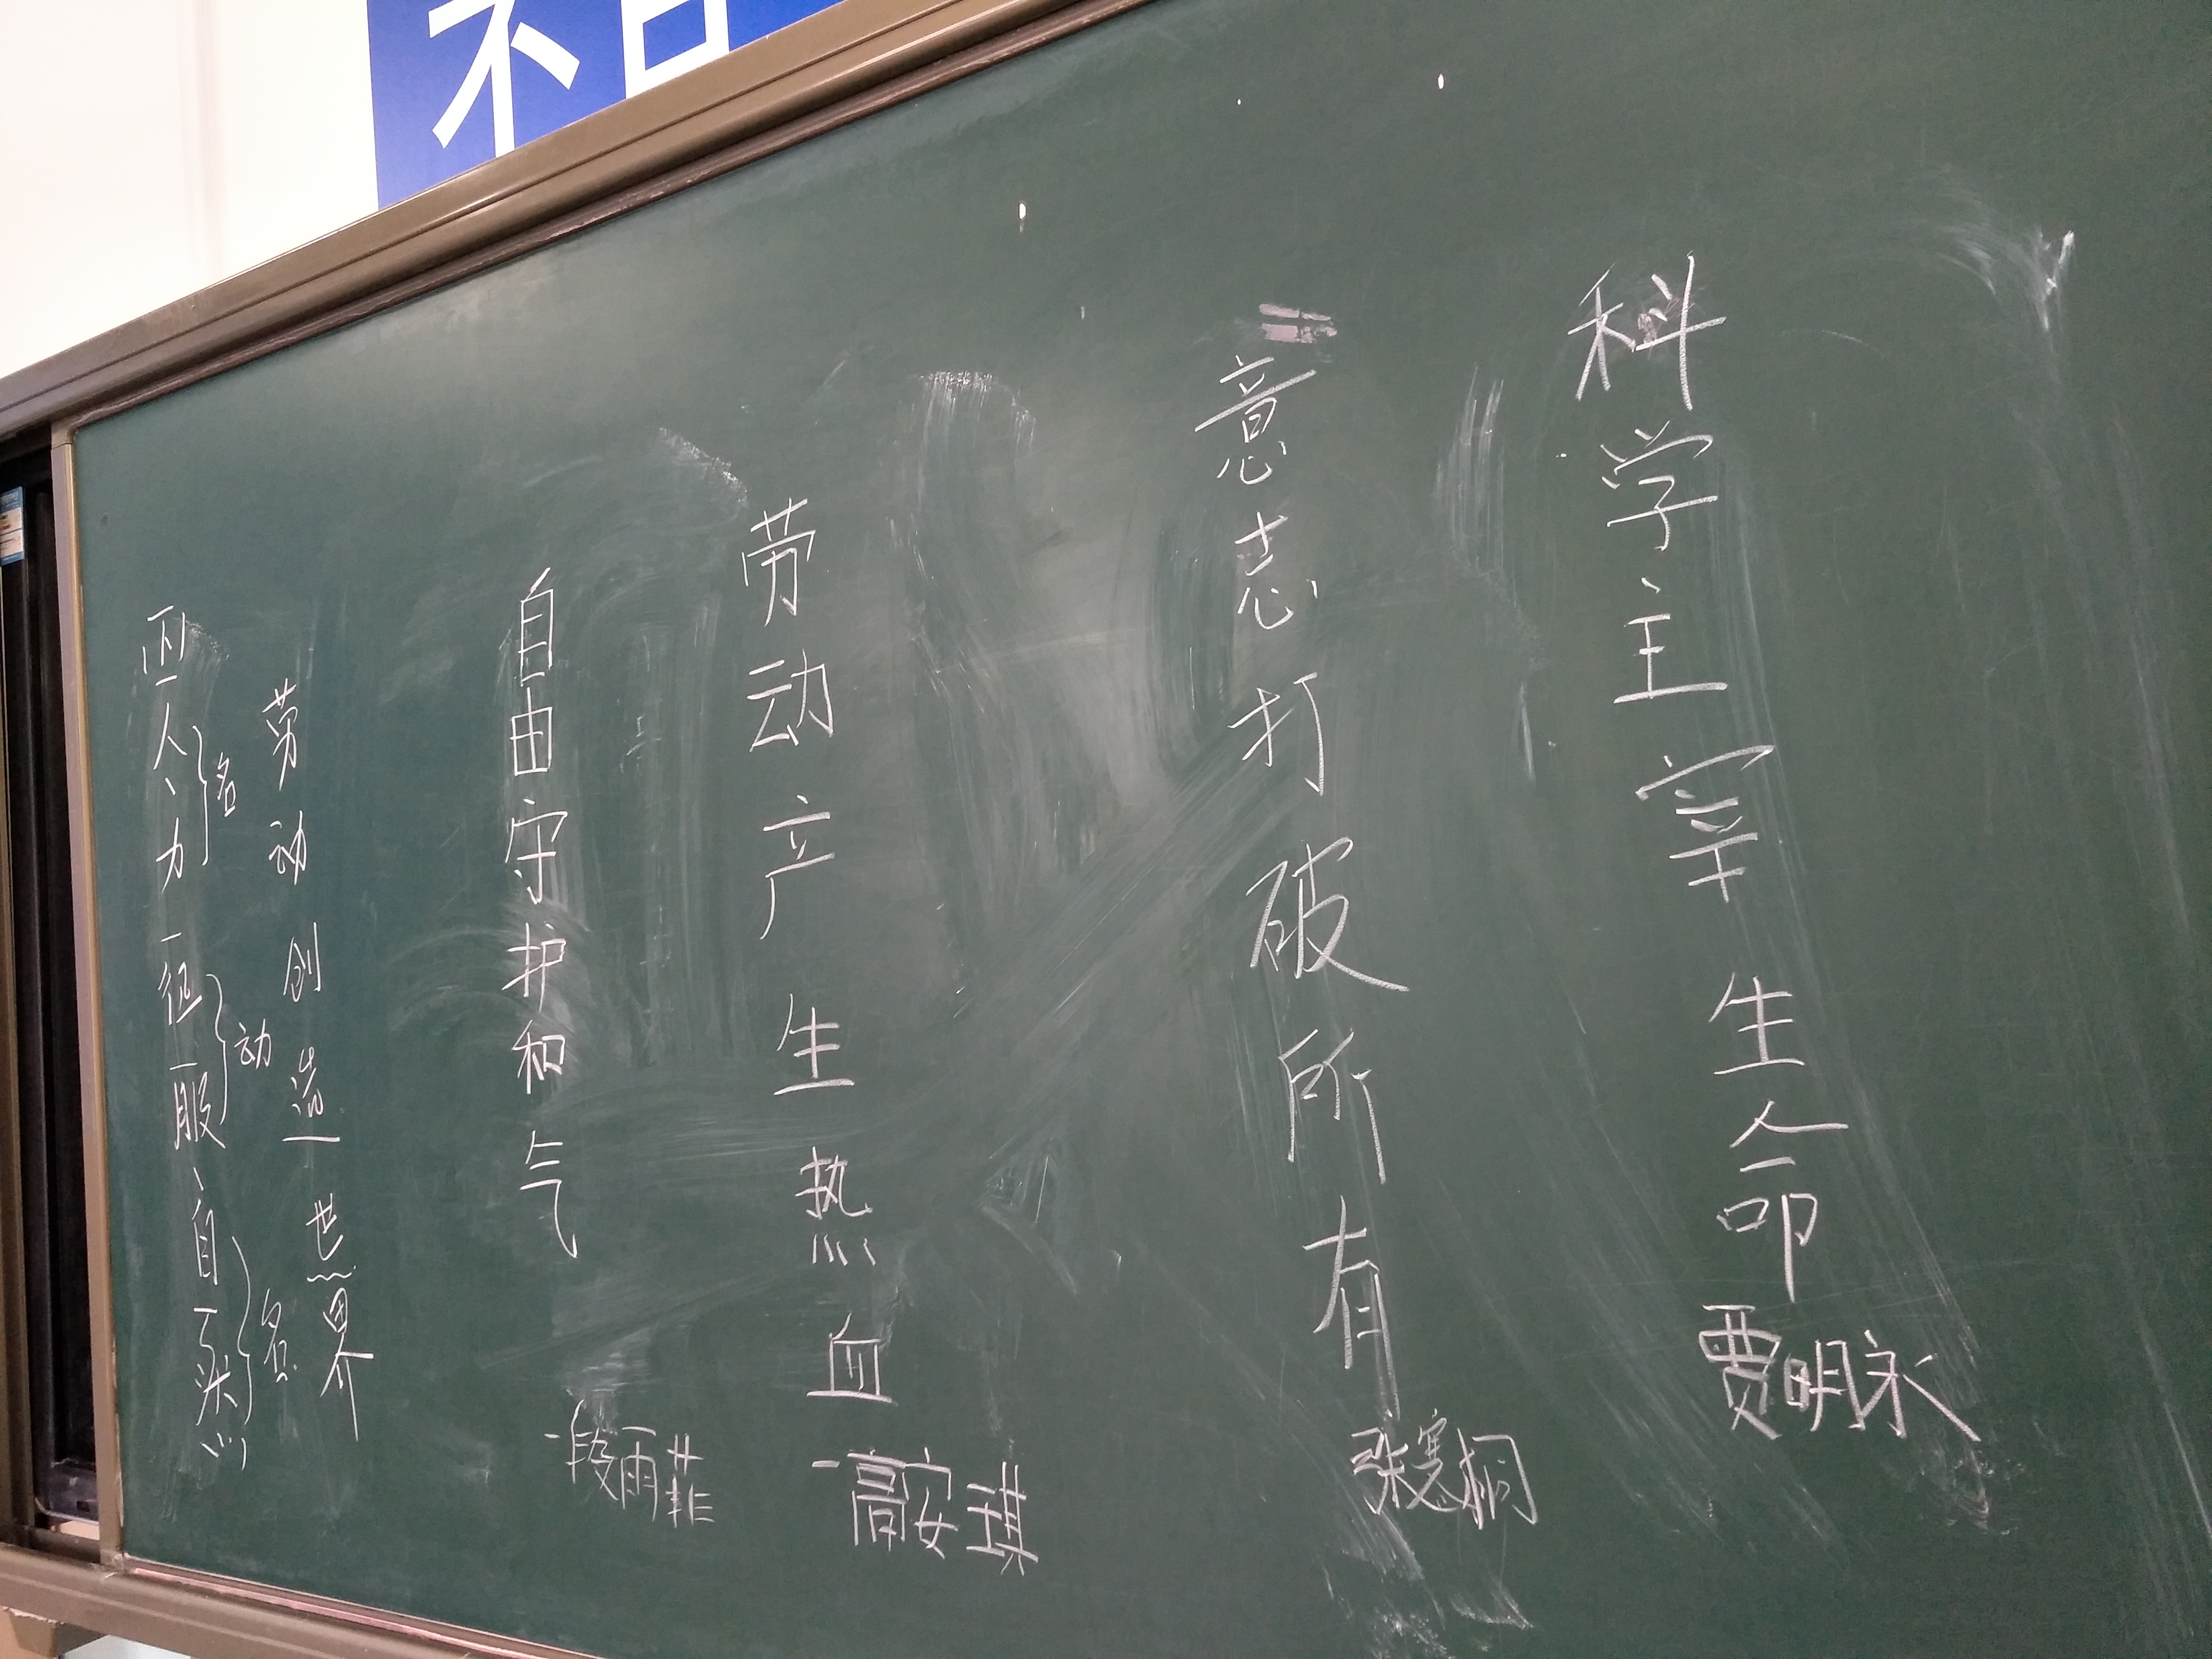 科学主宰生命
贾明永
意志打破所有
张寒桐
劳动产生热血
一高安琪
自由守护和气
一段雨菲
劳动创造世界
名
动
名
人、力一征服、自然